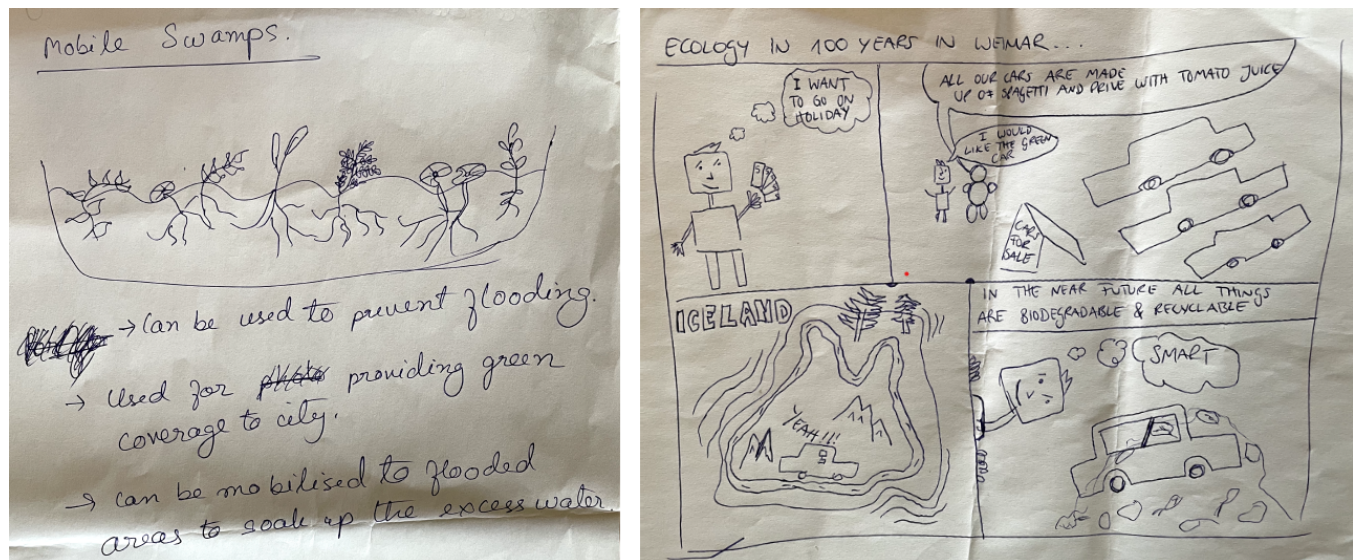 Mobile Swamps.
→ Can be used to prevent flooding.
→ Used for providing green
coverage to city.
→ can be mobilised to flooded
areas to soak up the excess water.
ECOLOGY IN 100 YEARS IN WEIMAR...
I WANT
TO GO ON
HOLIDAY
ALL OUR CARS ARE MADE
UP OF SPAGETTI AND DRIVE WITH TOMATO JUICE
I WOULD
LIKE THE GREEN
CAR
CARS
FOR
SALE
ICELAND
YEAH!!!
IN THE NEAR FUTURE ALL THINGS
ARE BIODEGRADABLE & RECYCLABLE
SMART